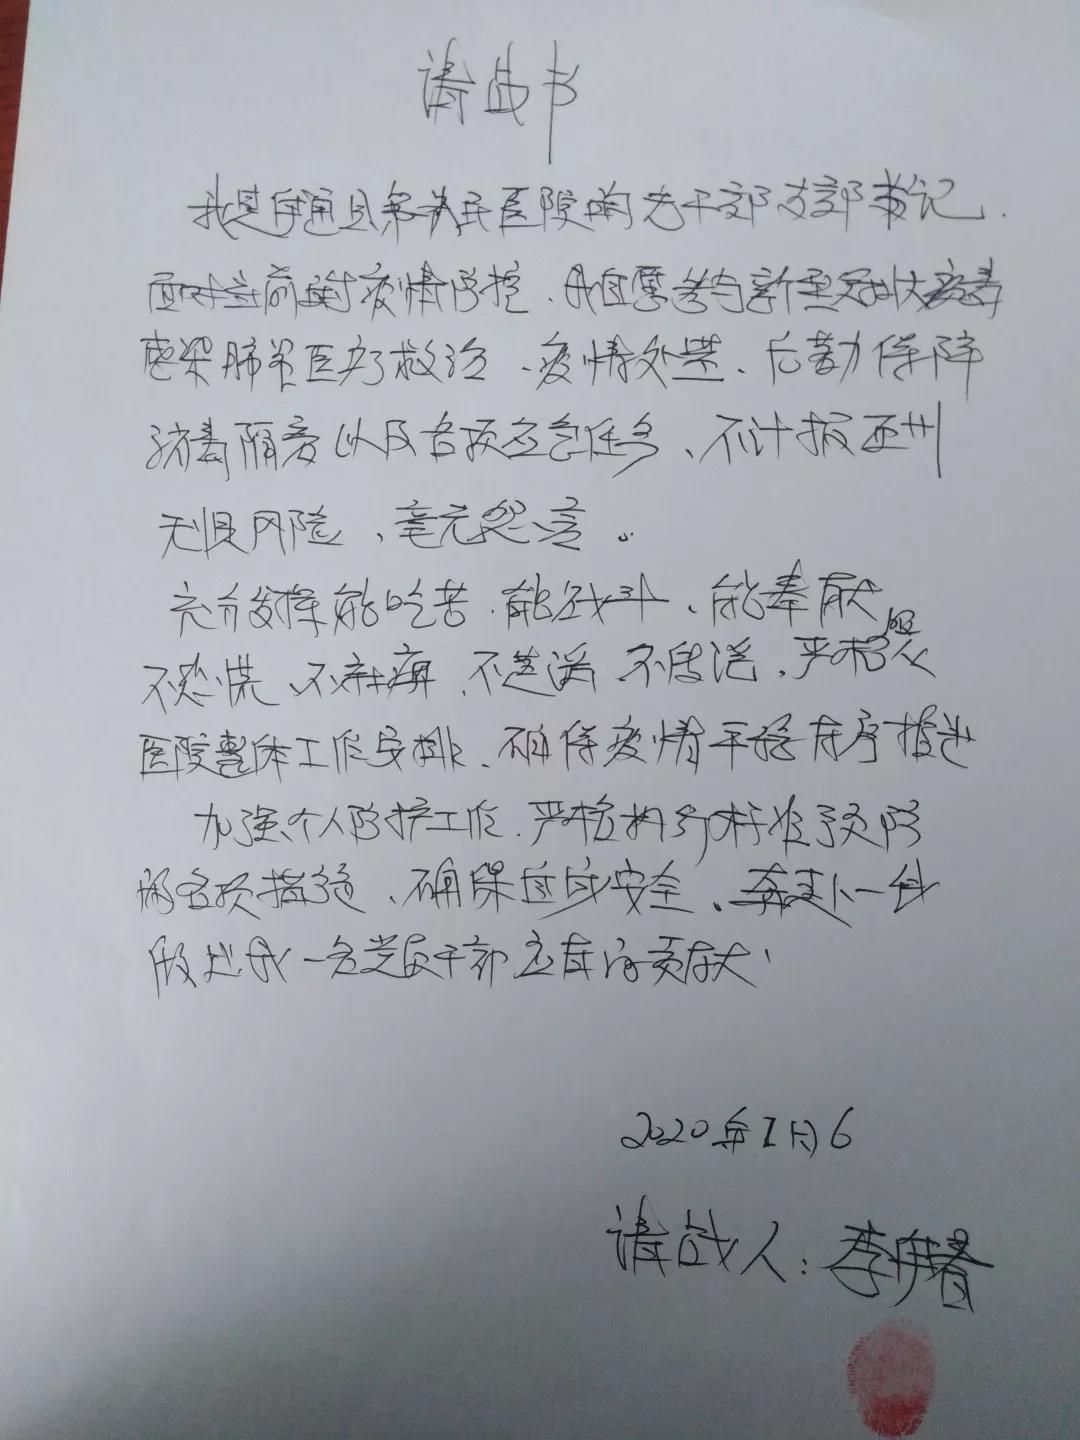 请战书
我是通县第人民医院的老干部支部书记.
面对当前疫情防控、我自愿参与新型冠状病毒
感染肺炎医疗救治、疫情处置、后勤保障
消毒隔离以及各项应急任务、不计报酬
无惧风险、毫无怨言。
充分发挥能吃苦、能战斗、能奉献
不恐慌、不麻痹、不造谣 不传谣、严格服从
医院整体工作安排、确保疫情平稳有序推进
加强个人防护工作、严格执行标准预防
的各项措施、确保自身安全、奔赴一线
做出我一名党员干部应有的贡献
2020年 月6
请战人:李春